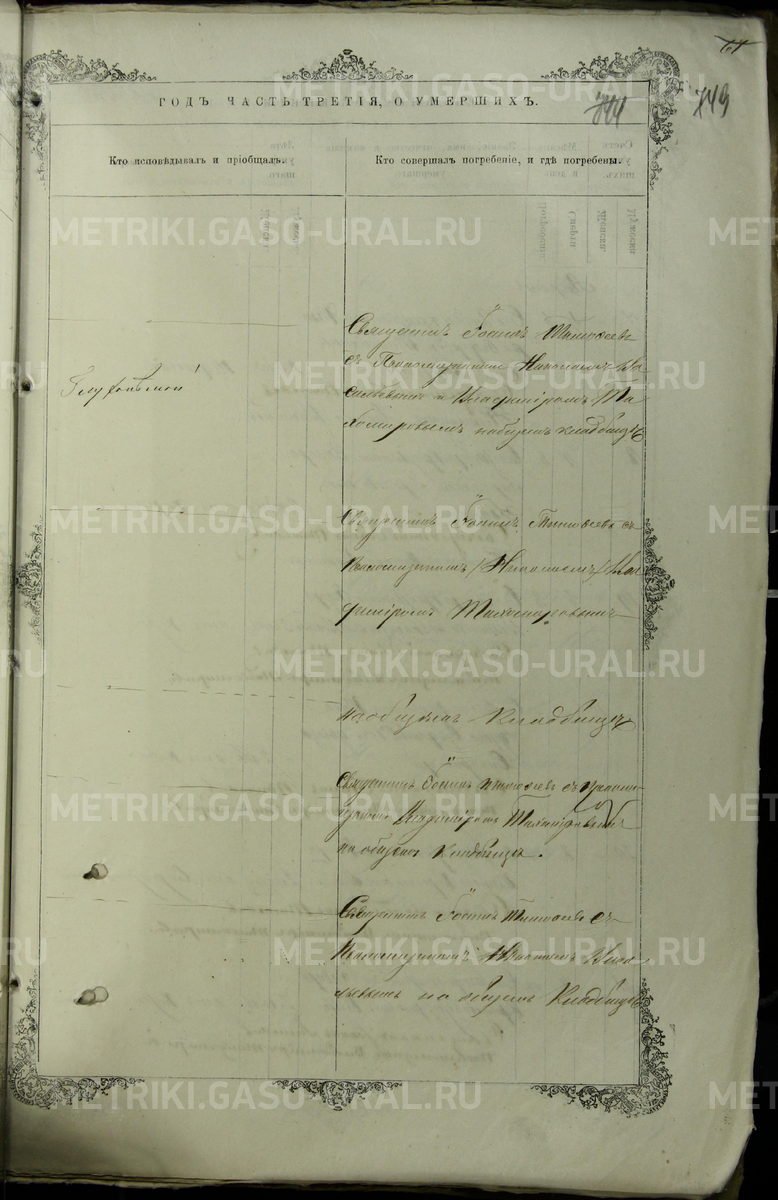 749
ГОДЪ ЧАСТЬ ТРЕТІЯ, О УМЕРШИХЪ.
Кто исповѣдывалъ и пріобщалъ.
Кто совершалъ погребеніе, и гдѣ погребены.
METRIKI.GASO-URAL.RU
Священникъ Іоаннъ Тимоѳеевъ
съ Псаломщиками Николаемъ Ва
сильевымъ и Владиміромъ Ти
хомировымъ на общемъ кладбищѣ
Священникъ Іоаннъ Тимоѳеевъ съ
Псаломщикомъ Вла
диміромъ Тихомировымъ
на общемъ Кладбищѣ
Священникъ Іоаннъ Тимоѳеевъ съ Псалом
щикомъ Владиміромъ Тихомировымъ
на общемъ Кладбищѣ.
Священникъ Іоаннъ Тимоѳеевъ съ
Псаломщикомъ Николаемъ Васи
льевымъ на общемъ Кладбищѣ